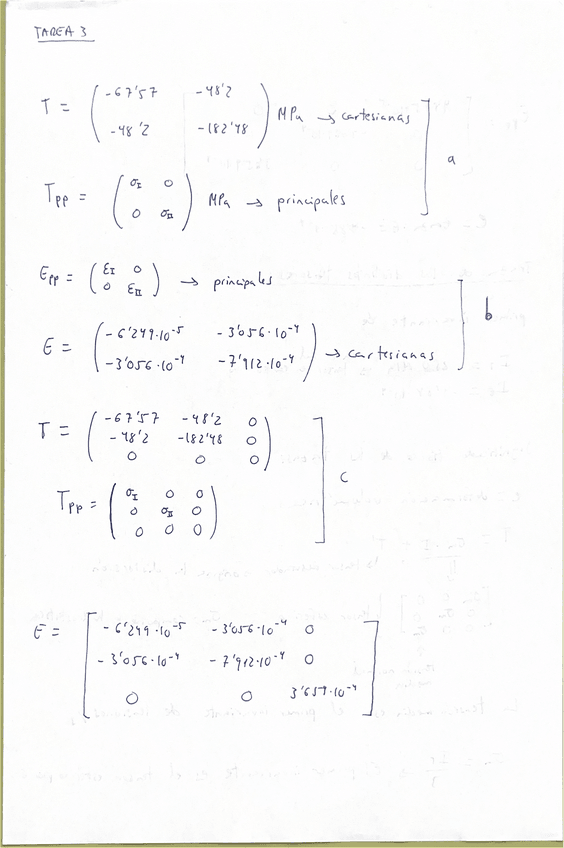 TAREA 3
T = ( -67'57 -48'2
-48'2 -182'48 ) MPa → cartesianas
a
Tpp = ( σI 0
0 σII ) MPa → principales
Epp = ( εI 0
0 εII ) → principales
b
E = ( -6'249·10⁻⁵ -3'056·10⁻⁴
-3'056·10⁻⁴ -7'912·10⁻⁴ ) → cartesianas
T = ( -67'57 -48'2 0
-48'2 -182'48 0
0 0 0 )
c
Tpp = ( σI 0 0
0 σII 0
0 0 0 )
E = [ -6'249·10⁻⁵ -3'056·10⁻⁴ 0
-3'056·10⁻⁴ -7'912·10⁻⁴ 0
0 0 3'659·10⁻⁴ ]